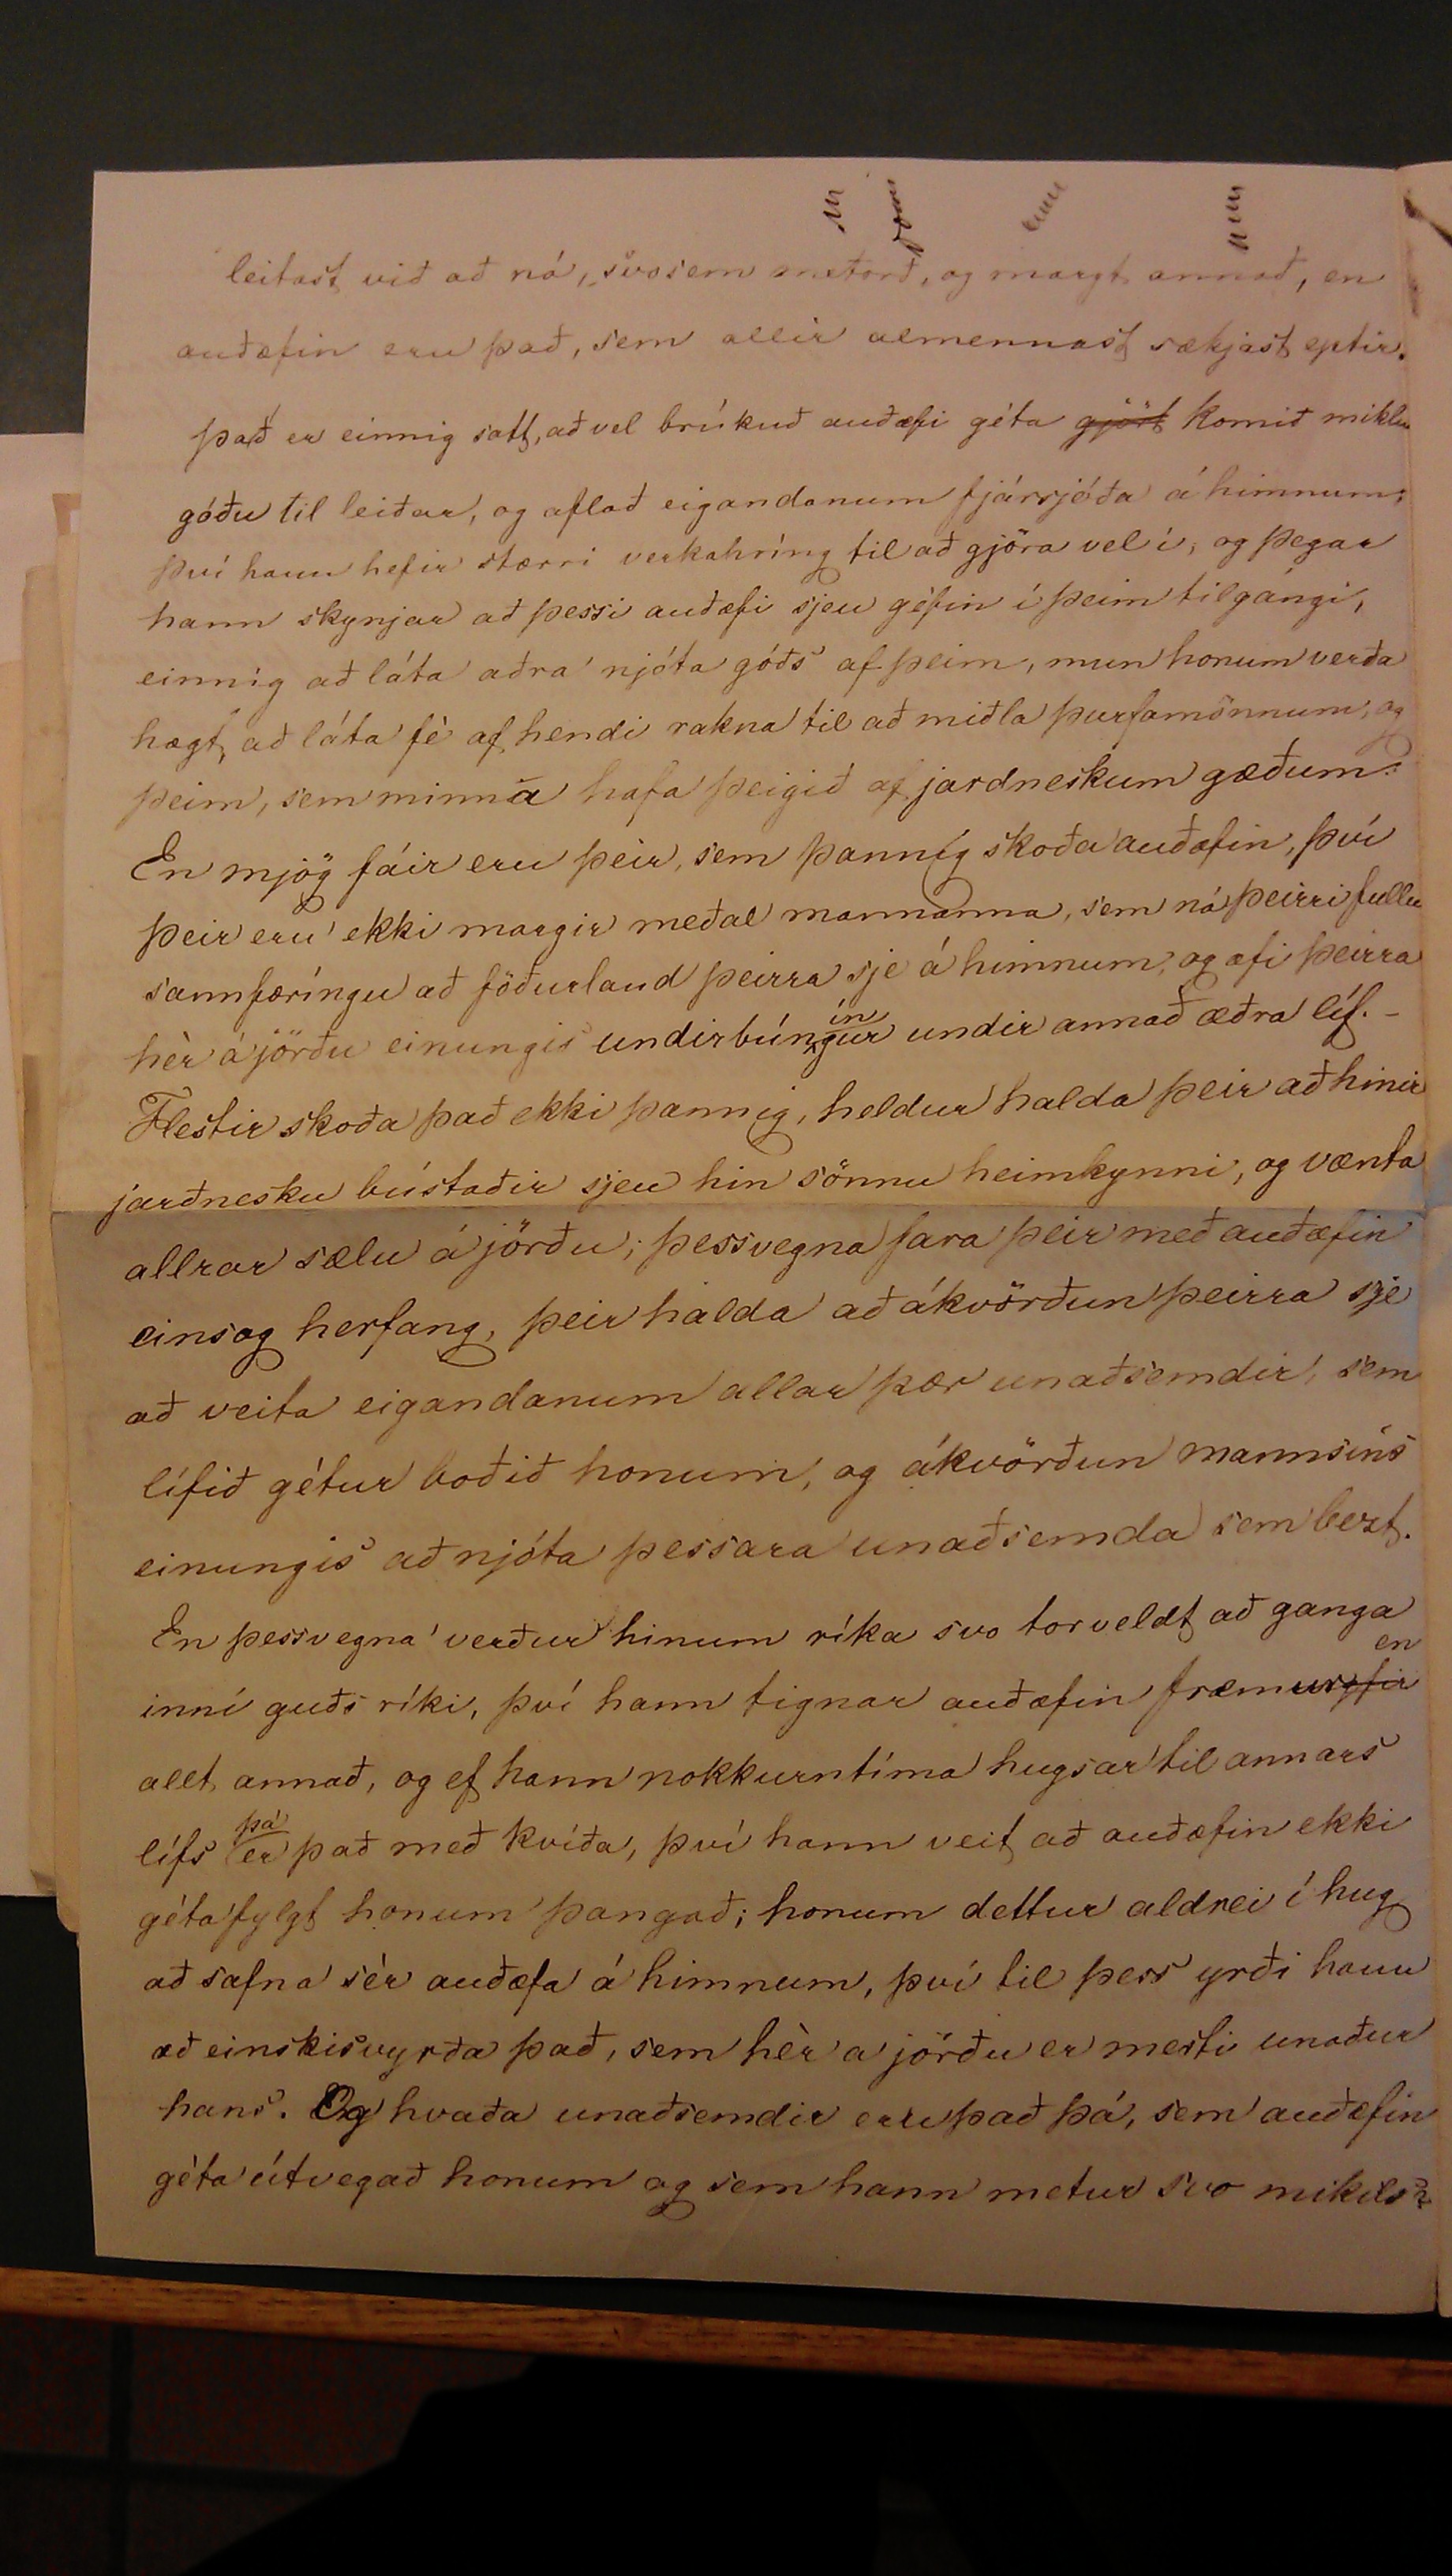 leitast við að ná, svosem metorð, og margt annað, en
auðæfin eru það, sem allir almennast sækjast eptir.
Það er einnig satt, að vel brúkuð auðæfi géta gjört komið miklu
góðu til leiðar, og aflað eigandanum fjársjóða á himnum;
því hann hefir stærri verkahríng til að gjöra vel í, og þegar
hann skynjar að þessi auðæfi sjeu géfin í þeim tilgángi,
einnig að láta aðra njóta góðs af þeim, mun honum verða
hægt, að láta fé af hendi rakna til að miðla þurfamönnum, og
þeim, sem minna hafa þeigið af jardneskum gæðum.
En mjög fáir eru þeir, sem þannig skoða auðæfin, því
þeir eru ekki margir meðal mannanna, sem ná þeirri fullu
sannfæríngu að föðurland þeirra sje á himnum, og æfi þeirra
hèr á jörðu einungis undirbúníngur undir annað æðra líf. -
Flestir skoða það ekki þannig, heldur halda þeir að hinir
jarðnesku bústaðir sjeu hin sönnu heimkynni, og vænta
allrar sælu á jörðu; þessvegna fara þeir með auðæfin
einsog herfang, þeir halda að ákvörðun þeirra sje
að veita eigandanum allar þær unaðsemdir, sem
lífið gétur boðið honum, og ákvörðun mannsins
einungis að njóta þessara unaðsemda sem bezt.
En þessvegna verður hinum ríka svo torveldt að ganga
inní guðs ríki, því hann tignar auðæfin fremur yfir en
allt annað, og ef hann nokkurntíma hugsar til annars
lífs þá er það með kvíða, því hann veit að auðæfin ekki
géta fylgt honum þangað; honum dettur aldrei í hug
að safna sér auðæfa á himnum, því til þess yrði hann
að einskisvyrða það, sem hèr a jörðu er mesti unaður
hans. Og hvaða unaðsemdir eru það þá, sem auðæfin
géta útvegað honum og sem hann metur svo mikils?